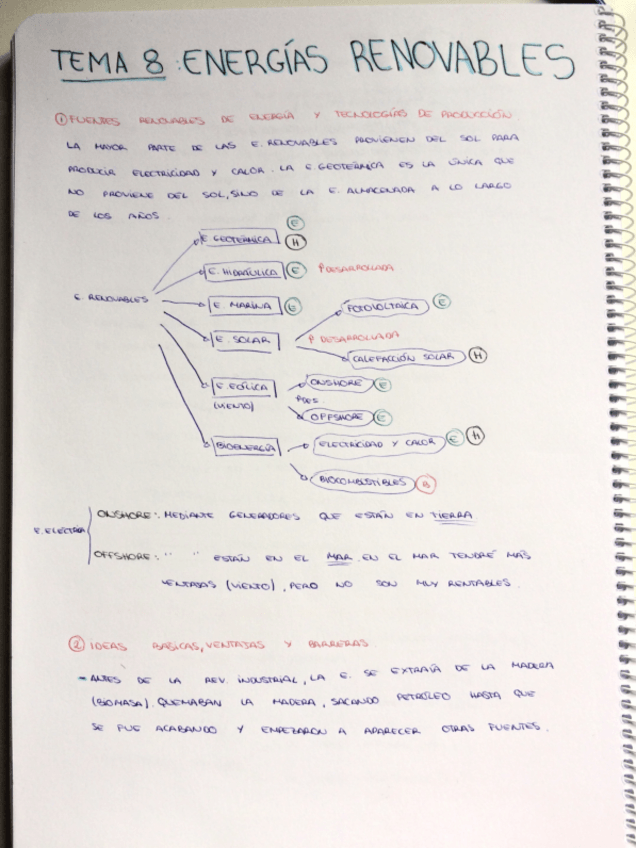 TEMA 8: ENERGÍAS RENOVABLES
① FUENTES RENOVABLES DE ENERGÍA Y TECNOLOGÍAS DE PRODUCCIÓN
LA MAYOR PARTE DE LAS E. RENOVABLES PROVIENEN DEL SOL PARA
PRODUCIR ELECTRICIDAD Y CALOR. LA E. GEOTÉRMICA ES LA ÚNICA QUE
NO PROVIENE DEL SOL, SINO DE LA E. ALMACENADA A LO LARGO
DE LOS AÑOS.
E. RENOVABLES
E. GEOTÉRMICA E H
E. HIDRÁULICA E DESARROLLADA
E. MARINA E
E. SOLAR DESARROLLADA
FOTOVOLTAICA E
CALEFACCIÓN SOLAR H
E. EÓLICA
(VIENTO)
ONSHORE E
OFFSHORE E
BIOENERGÍA
ELECTRICIDAD Y CALOR E H
BIOCOMBUSTIBLES B
E. ELECTRICA
ONSHORE: MEDIANTE GENERADORES QUE ESTÁN EN TIERRA
OFFSHORE: " " ESTÁN EN EL MAR. EN EL MAR TENDRÉ MÁS
VENTAJAS (VIENTO), PERO NO SON MUY RENTABLES.
② IDEAS BÁSICAS, VENTAJAS Y BARRERAS
- ANTES DE LA REV. INDUSTRIAL, LA E. SE EXTRAÍA DE LA MADERA
(BIOMASA). QUEMABAN LA MADERA, SACANDO PETRÓLEO HASTA QUE
SE FUE ACABANDO Y EMPEZARON A APARECER OTRAS FUENTES.